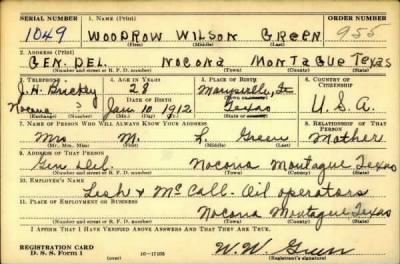 SERIAL NUMBER 1. NAME (Print) ORDER NUMBER
1049 WOODROW WILSON GREEN 955
(First) (Middle) (Last)
2. ADDRESS (Print)
GEN. DEL. NOCONA MONTAGUE TEXAS
(Number and street or R. F. D. number) (Town) (County) (State)
3. TELEPHONE 4. AGE IN YEARS 5. PLACE OF BIRTH 6. COUNTRY OF CITIZENSHIP
J.H. Brickey 28
DATE OF BIRTH
Nocona ? Jan. 10, 1912. Texas U.S.A.
(Exchange) (Number) (Mo.) (Day) (Yr.) (State or country)
7. NAME OF PERSON WHO WILL ALWAYS KNOW YOUR ADDRESS 8. RELATIONSHIP OF THAT PERSON
Mrs M. L. Green Mother
(Mr., Mrs., Miss) (First) (Middle) (Last)
9. ADDRESS OF THAT PERSON
Gen Del. Nocona Montague Texas
(Number and street or R. F. D. number) (Town) (County) (State)
10. EMPLOYER'S NAME
& McCall- Oil operators
11. PLACE OF EMPLOYMENT OR BUSINESS
Nocona Montague Texas
(Number and street or R. F. D. number) (Town) (County) (State)
I AFFIRM THAT I HAVE VERIFIED ABOVE ANSWERS AND THAT THEY ARE TRUE.
REGISTRATION CARD
D. S. S. Form 1 16-17105 W.W Green
(Registrant's signature)